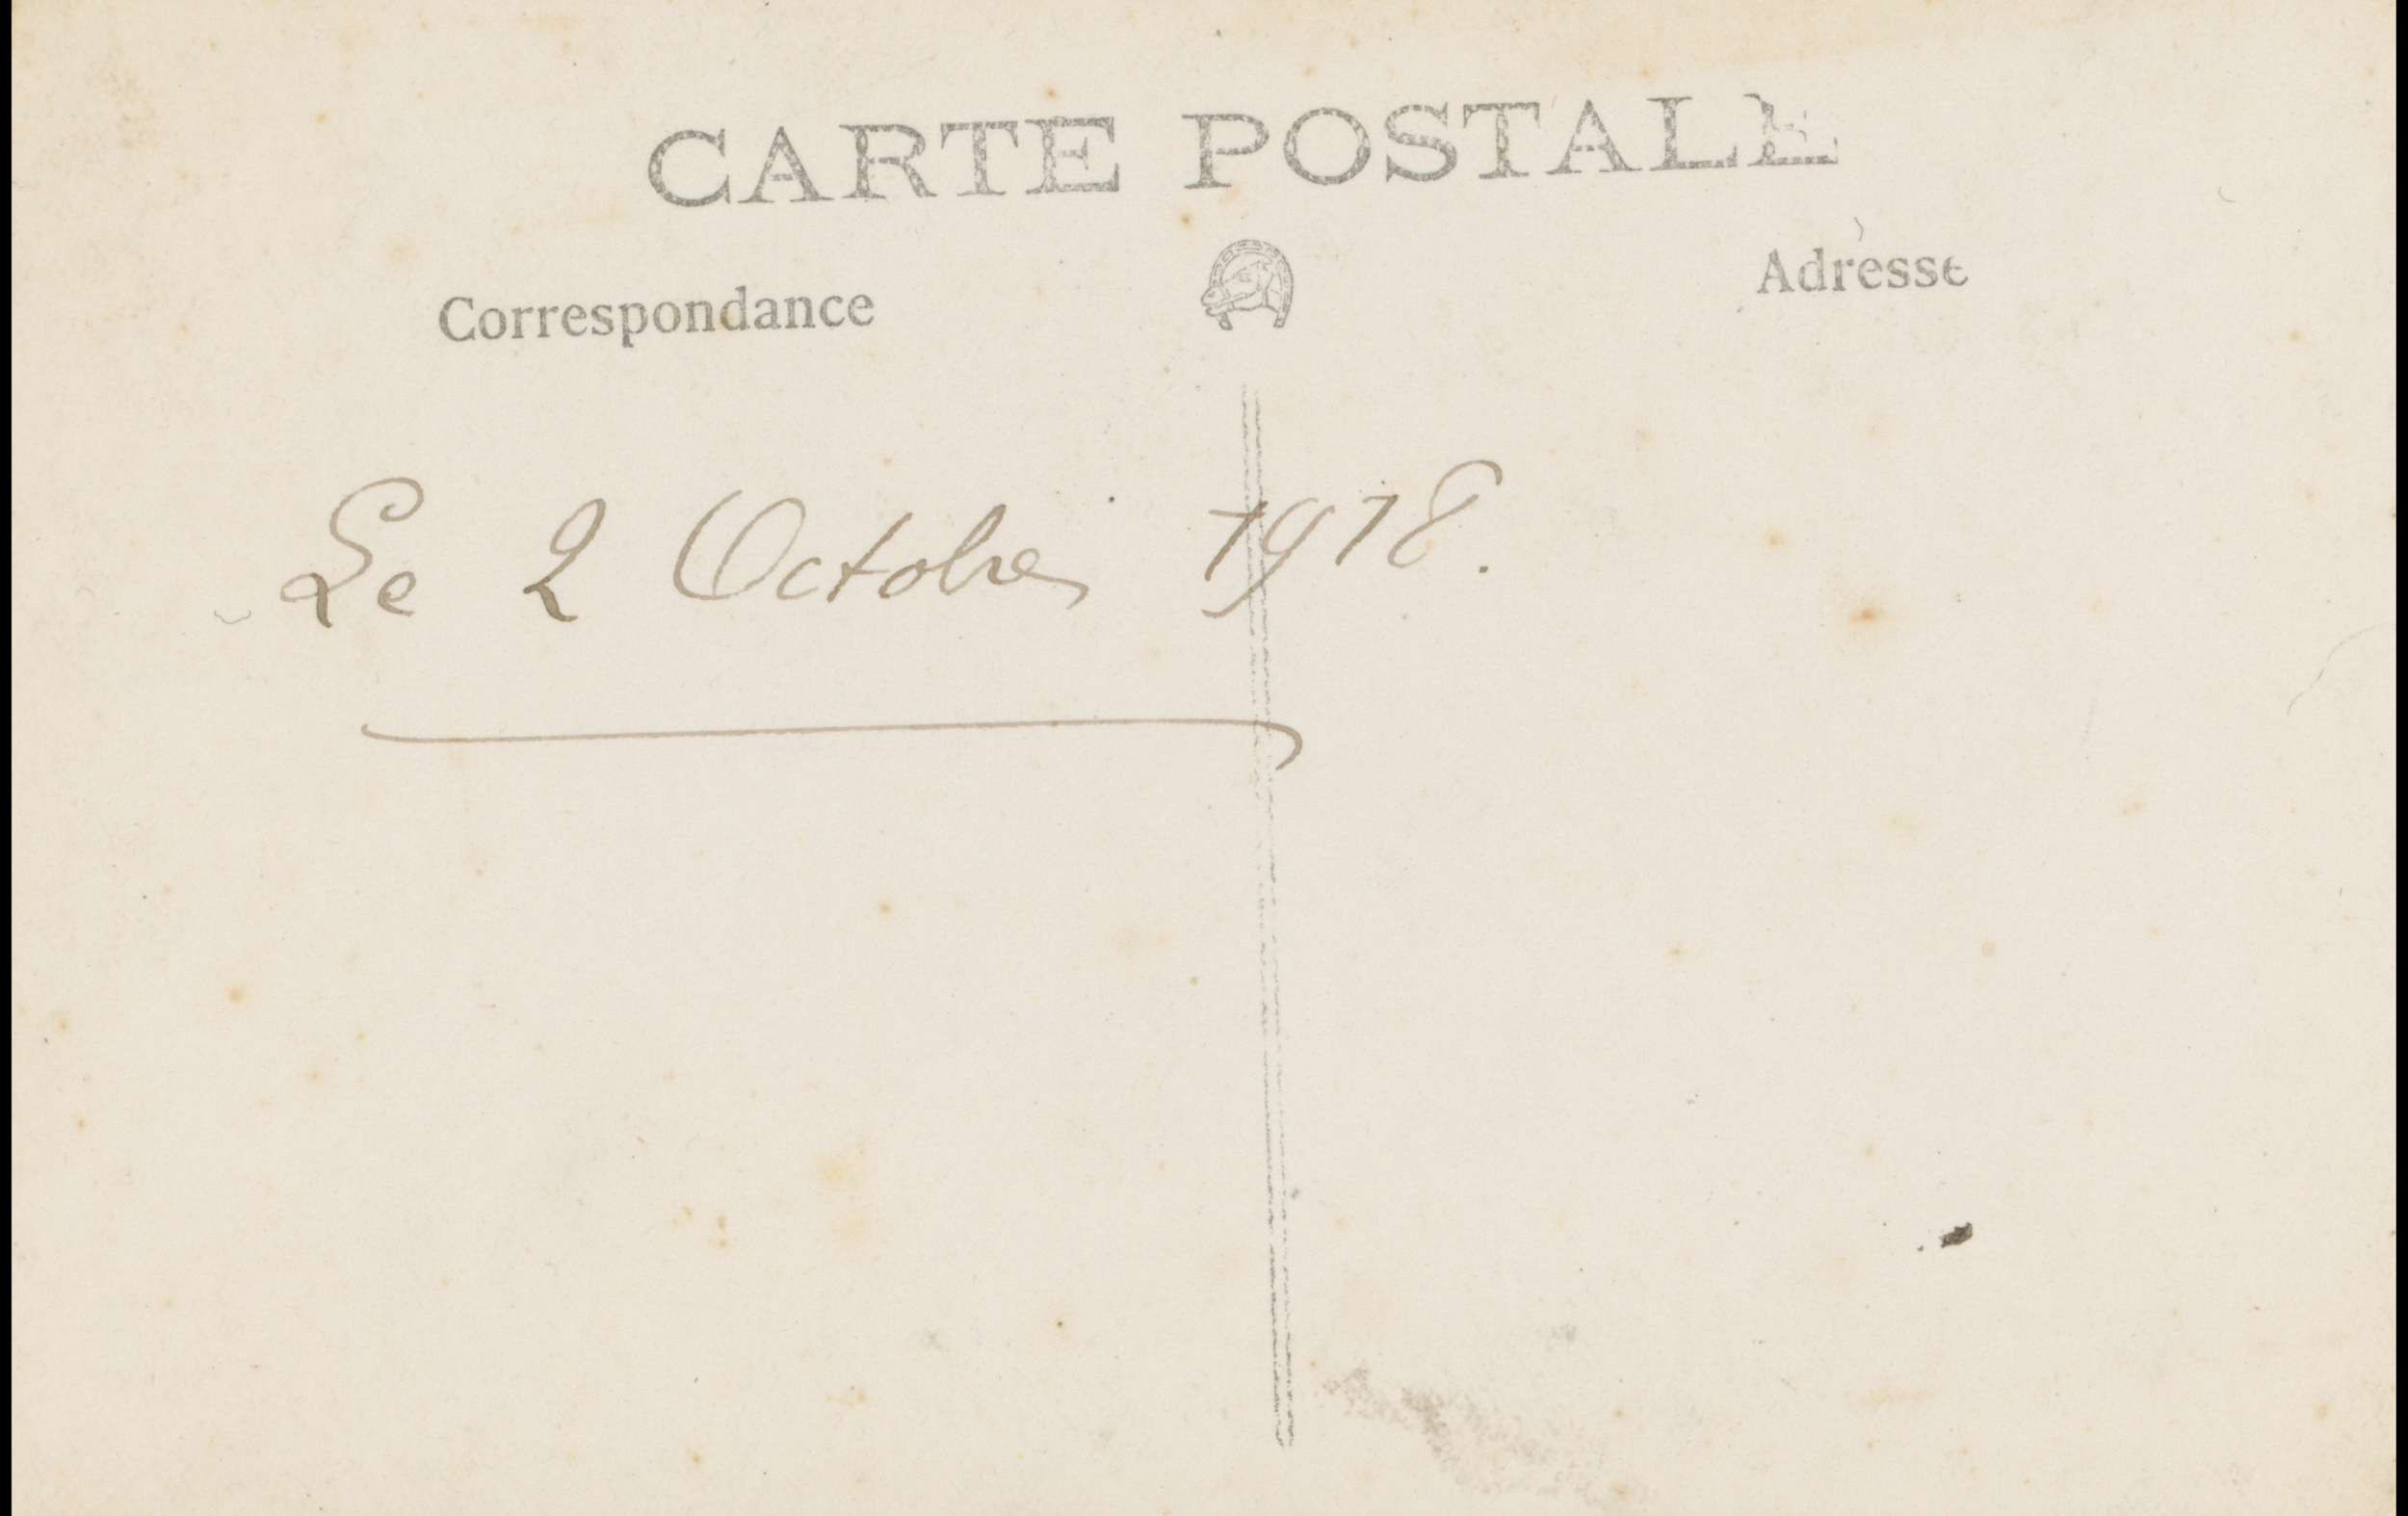 CARTE POSTALE
Correspondance
Adresse
Le 2 Octobre 1918.